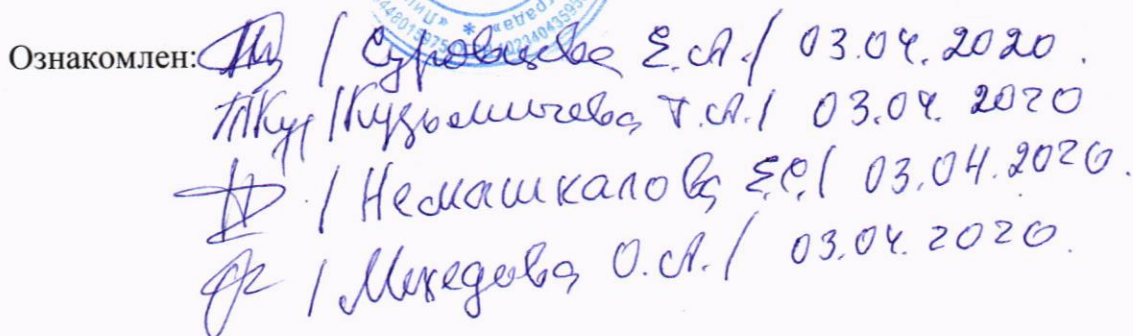 Ознакомлен: / Суровцева Е.А./ 03.04.2020.
/Кузьмичева Т.А./ 03.04.2020
/ Немашкалова Е.С./ 03.04.2020.
/ О.А./ 03.04.2020.